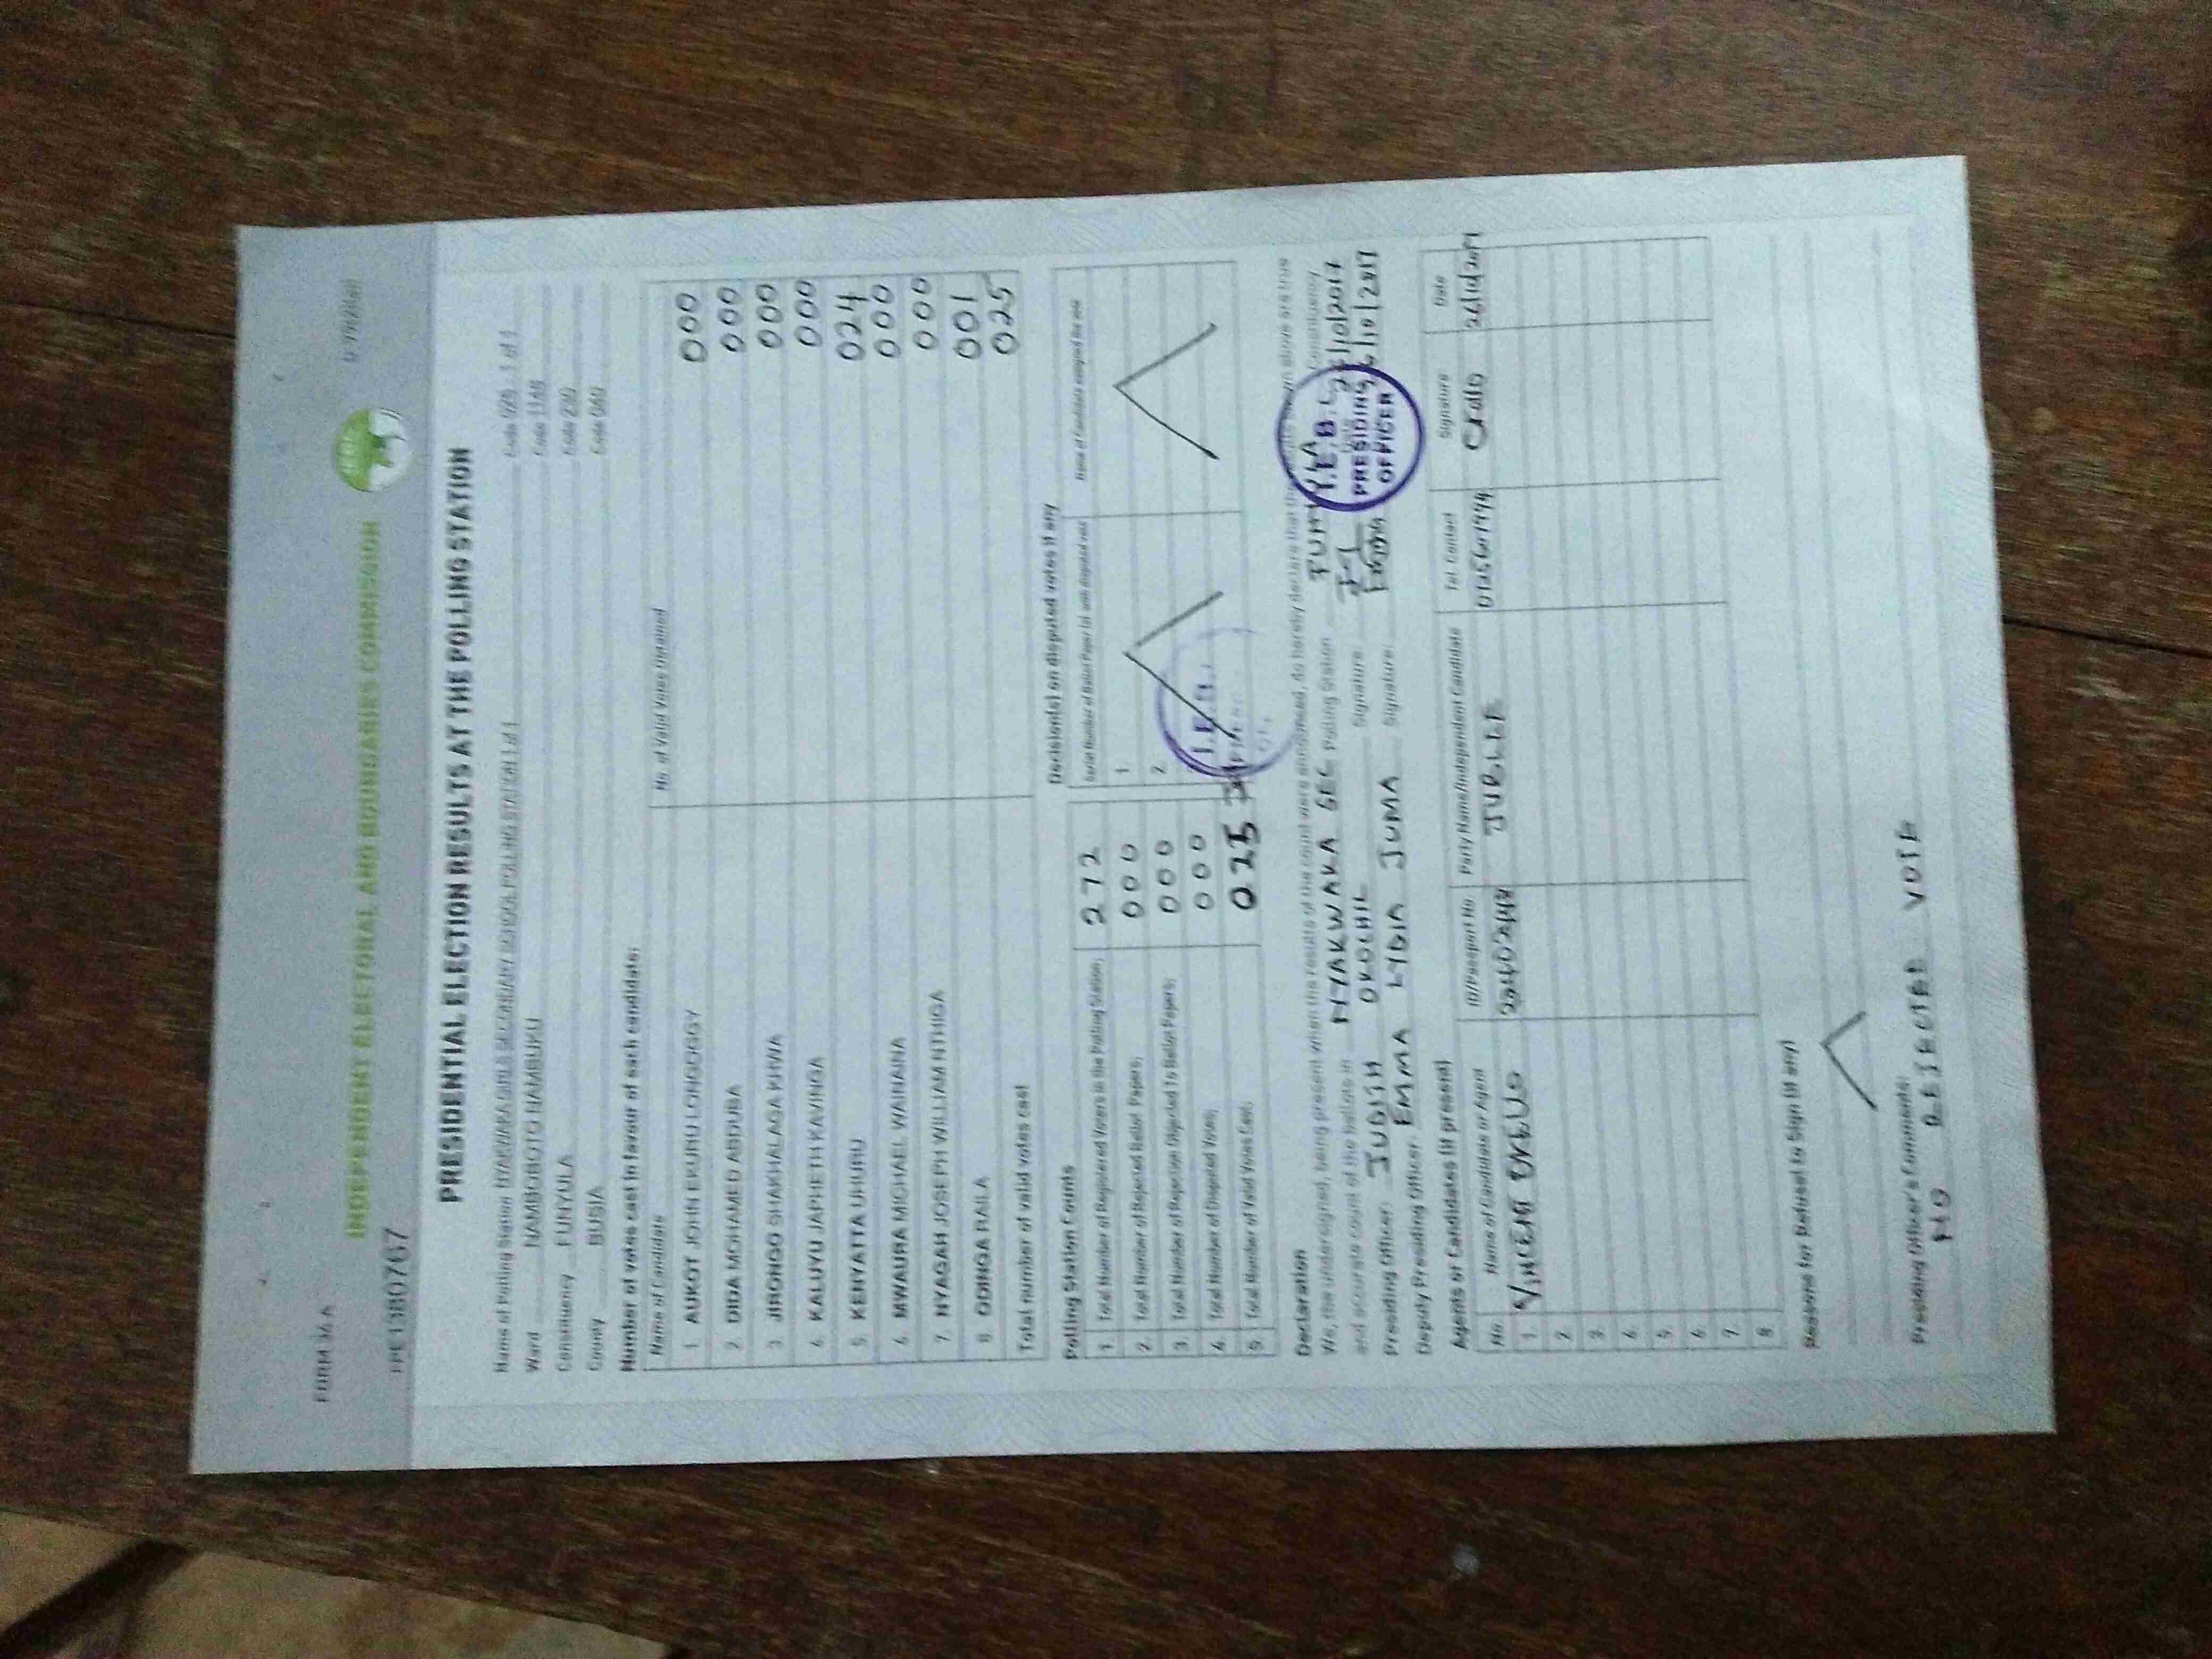 FORM 34 A
INDEPENDENT ELECTORAL AND BOUNDARIES COMMISSION
PRE1380767
PRESIDENTIAL ELECTION RESULTS AT THE POLLING STATION
Name of Polling Station NYAKWAKA GIRLS SECONDARY SCHOOL POLLING STATION 1 of 1 Code 026 1 of 1
Ward NAMBOBOTO NAMBUKU Code 1148
Constituency FUNYULA Code 230
County BUSIA Code 040
Number of votes cast in favour of each candidate:
Name of Candidate No. of Valid Votes Obtained
1 AUKOT JOHN EKURU LONGOGGY 000
2 DIDA MOHAMED ABDUBA 000
3 JIRONGO SHAKHALAGA KHWA 000
4 KALUYU JAPHETH KAVINGA 000
5 KENYATTA UHURU 024
6 MWAURA MICHAEL WAINAINA 000
7 NYAGAH JOSEPH WILLIAM NTHIGA 000
8 ODINGA RAILA 001
Total number of valid votes cast 025
Polling Station Counts
1 Total Number of Registered Voters in the Polling Station; 272
2. Total Number of Rejected Ballot Papers; 000
3. Total Number of Rejection Objected To Ballot Papers; 000
4 Total Number of Disputed Votes; 000
5 Total Number of Valid Votes Cast; 025
Decision(s) on disputed votes if any
Serial Number of Ballot Paper (s) with disputed vote Name of Candidate assigned the vote
1
2
I.E.B.C
Declaration
We, the undersigned, being present when the results of the count were announced, do hereby declare that the results shown above are true
and accurate count of the ballots in NYAKWAKA SEC Polling Station FUNYULA Constituency
Presiding Officer: JUDITH OKOCHIL Signature: 26/10/2017
Deputy Presiding Officer: EMMA LYDIA JUMA Signature: 26/10/2017
I.E.B.C
PRESIDING
OFFICER
Agents or Candidates (if present)
No. Name of Candidate or Agent ID/Passport No Party Name/Independent Candidate Tel. Contact Signature Date
1. VINCENT OKELLO JUBILEE 26/10/2017
2
3.
4.
5.
6.
7.
8
Reasons for Refusal to Sign (if any)
Presiding Officer's Comments:
NO REJECTED VOTE